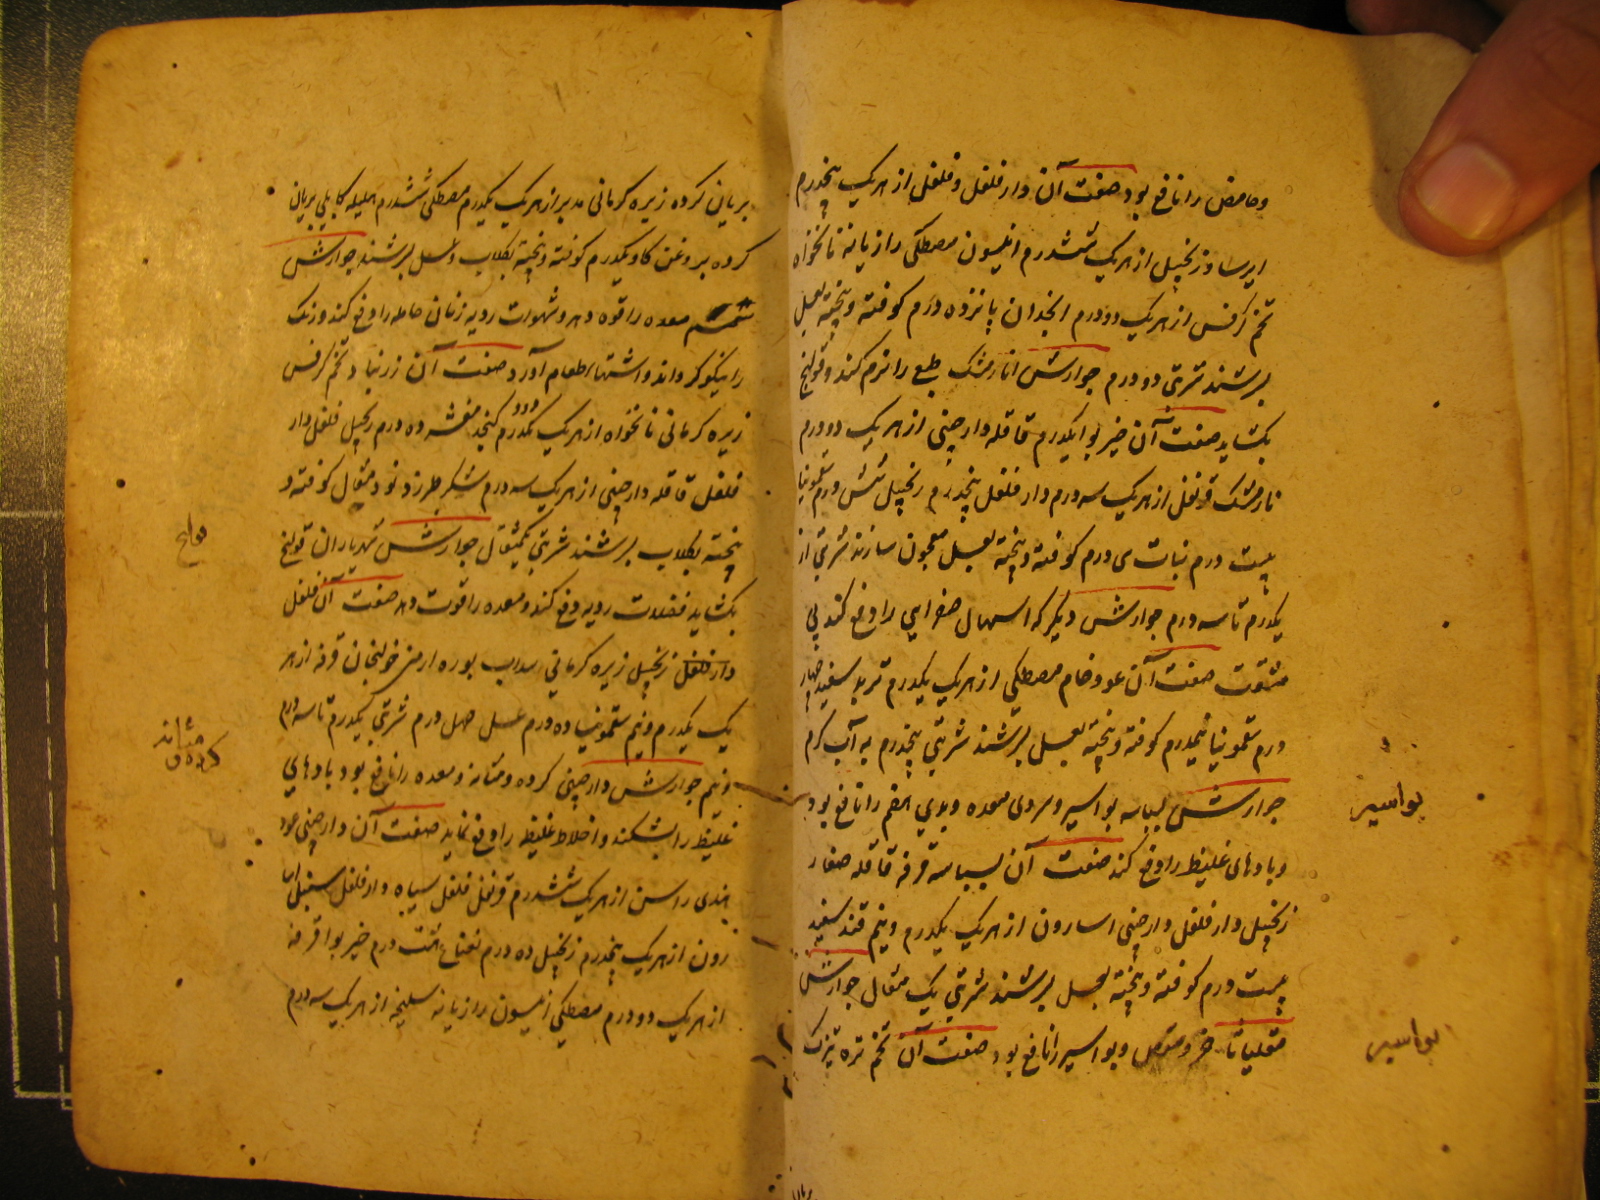 وحامض را نافع بود صفت آن دار فلفل و فلفل از هر یک پنجدرم
ایرسا و زنجبیل از هر یک ششدرم انیسون مصطکی رازیانه نانخواه
تخم کرفس از هر یک دودرم انجدان پانزده درم کوفته و پیخته بعسل
بسرشند شربتی دو درم جوارش انارمشک طبع را نرم کند و قولنج
بکشاید صفت آن خیربوا یکدرم قاقله دارچینی از هر یک دو درم
نارمشک قرنفل از هر یک سه درم دار فلفل پنجدرم زنجبیل شش درم سقمونیا
بیست درم نبات سی درم کوفته و پیخته بعسل معجون سازند شربتی از
یکدرم تا سه درم جوارش دیگر که اسهال صفرایی را دفع کند بی
مشقت صفت آن عود خام مصطکی از هر یک یکدرم تربد سفید چهار
درم سقمونیا نیمدرم کوفته و پیخته بعسل بسرشند شربتی پنجدرم به آب گرم
جوارش بسباسه بواسیر و سردی معده و بوی الفم را نافع بود
و بادهای غلیظ را دفع کند صفت آن بسباسه قرفه قاقله صغار
زنجبیل دار فلفل دارچینی اسارون از هر یک یکدرم و نیم قند سفید
بیست درم کوفته و پیخته بعسل بسرشند شربتی یک مثقال جوارش
مقلیاثا و بواسیر را نافع بود صفت آن تخم تره تیزک
بواسیر
بواسیر
بریان کرده زیره کرمانی مدبر از هر یک یکدرم مصطکی ششدرم هلیله کابلی بریان
کرده بروغن کاو یکدرم کوفته و پیخته بکلاب و عسل بسرشند جوارش
معده را قوه دهد و شهوات ردیه زنان حامله را دفع کند و رنک
را نیکو کرداند و اشتهاء طعام آورد صفت آن زرنباد تخم کرفس
زیره کرمانی نانخواه از هر یک کنجد مقشر ده درم زنجبیل فلفل دار
فلفل قاقله دارچینی از هر یک سه درم شکر طبرزد نود مثقال کوفته و
پیخته بکلاب بسرشند شربتی یکمثقال جوارش شهریاران قولنج
بکشاید فضلات ردیه دفع کند و معده را قوت دهد صفت آن فلفل
دار فلفل زنجبیل زیره کرمانی سداب بوره ارمنی خولنجان قرفه از هر
یک یکدرم و نیم سقمونیا ده درم عسل چهل درم شربتی یکدرم تا سه درم
و نیم جوارش دارچینی کرده و مثانه و معده را نافع بود بادهای
غلیظ را بشکند و اخلاط غلیظ را دفع نماید صفت آن دارچینی عود
هندی راسن از هر یک ششدرم قرنفل فلفل سیاه دار فلفل سنبل اسا
رون از هر یک پنجدرم زنجبیل ده درم نعناع هشت درم خیربوا قرفه
از هر یک دو درم مصطکی انیسون رازیانه سلیخه از هر یک سه درم
مثانه
کرده و